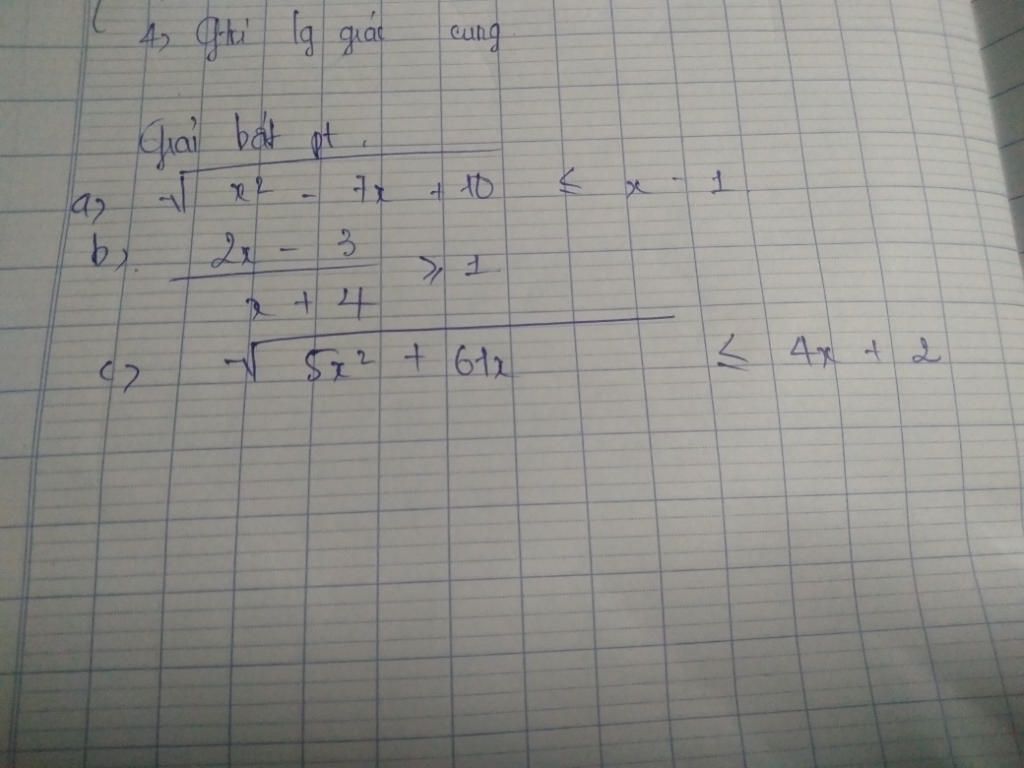 4, Ghi lg giác cung
Giải bất pt.
a, √(x² - 7x + 10) ≤ x - 1
b, (2x - 3)/(x + 4) ≥ 1
c, √(5x² + 61x) ≤ 4x + 2